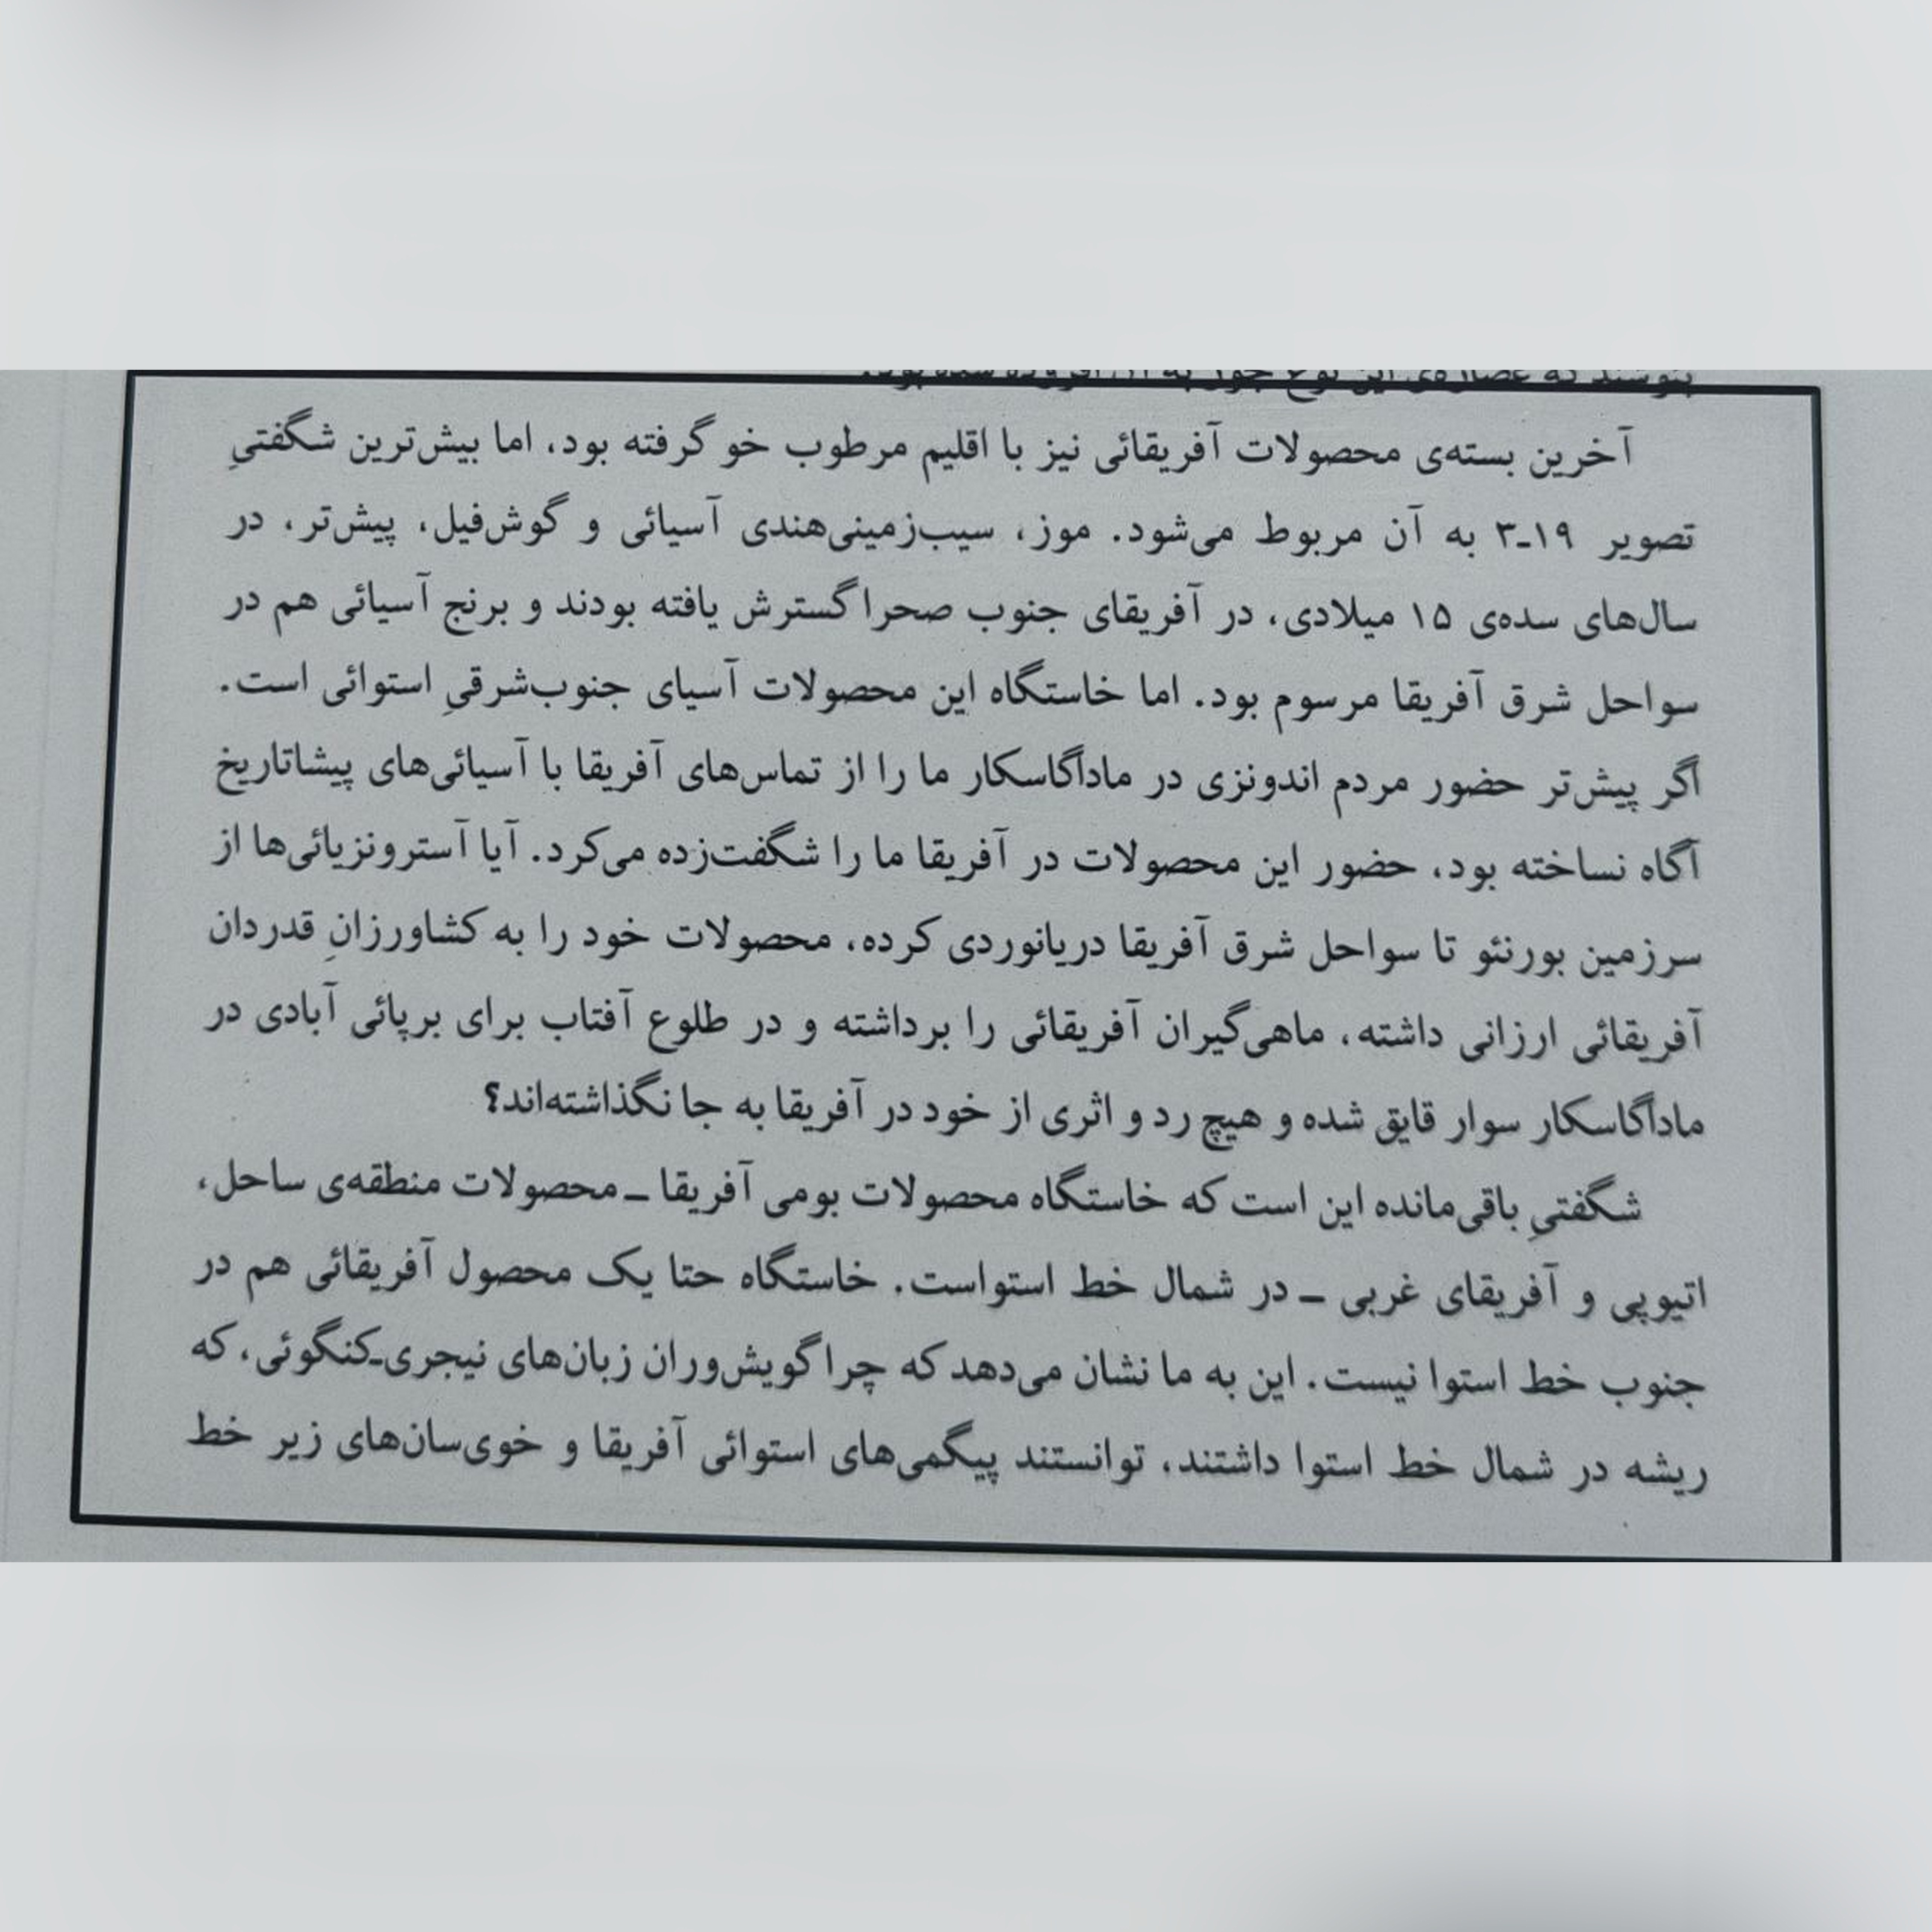 بنوشند که عصاره‌ی این نوع جوز به آن افزوده شده بود.
آخرین بسته‌ی محصولات آفریقائی نیز با اقلیم مرطوب خو گرفته بود، اما بیش‌ترین شگفتیِ
تصویر ۱۹ـ۳ به آن مربوط می‌شود. موز، سیب‌زمینی‌هندی آسیائی و گوش‌فیل، پیش‌تر، در
سال‌های سده‌ی ۱۵ میلادی، در آفریقای جنوب صحرا گسترش یافته بودند و برنج آسیائی هم در
سواحل شرق آفریقا مرسوم بود. اما خاستگاه این محصولات آسیای جنوب‌شرقیِ استوائی است.
اگر پیش‌تر حضور مردم اندونزی در ماداگاسکار ما را از تماس‌های آفریقا با آسیائی‌های پیشاتاریخ
آگاه نساخته بود، حضور این محصولات در آفریقا ما را شگفت‌زده می‌کرد. آیا آسترونزیائی‌ها از
سرزمین بورنئو تا سواحل شرق آفریقا دریانوردی کرده، محصولات خود را به کشاورزانِ قدردان
آفریقائی ارزانی داشته، ماهی‌گیران آفریقائی را برداشته و در طلوع آفتاب برای برپائی آبادی در
ماداگاسکار سوار قایق شده و هیچ رد و اثری از خود در آفریقا به جا نگذاشته‌اند؟
شگفتیِ باقی‌مانده این است که خاستگاه محصولات بومی آفریقا ــ محصولات منطقه‌ی ساحل،
اتیوپی و آفریقای غربی ــ در شمال خط استواست. خاستگاه حتا یک محصول آفریقائی هم در
جنوب خط استوا نیست. این به ما نشان می‌دهد که چرا گویش‌وران زبان‌های نیجری‌ـ‌کنگوئی، که
ریشه در شمال خط استوا داشتند، توانستند پیگمی‌های استوائی آفریقا و خوی‌سان‌های زیر خط